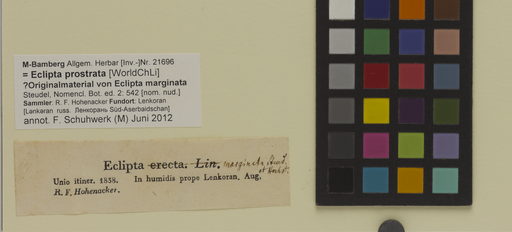 M-Bamberg Allgem. Herbar [Inv.-]Nr. 21696
= Eclipta prostrata [WorldChLi]
?Originalmaterial von Eclipta marginata
Steudel, Nomencl. Bot. ed. 2: 542 [nom. nud.]
Sammler: R. F. Hohenacker Fundort: Lenkoran
[Lankaran russ. Ленкорань Süd-Aserbaidschan]
annot. F. Schuhwerk (M) Juni 2012
Eclipta erecta. Lin. marginata Steud.
et Hochst.
Unio itiner. 1838. In humidis prope Lenkoran. Aug.
R. F. Hohenacker.